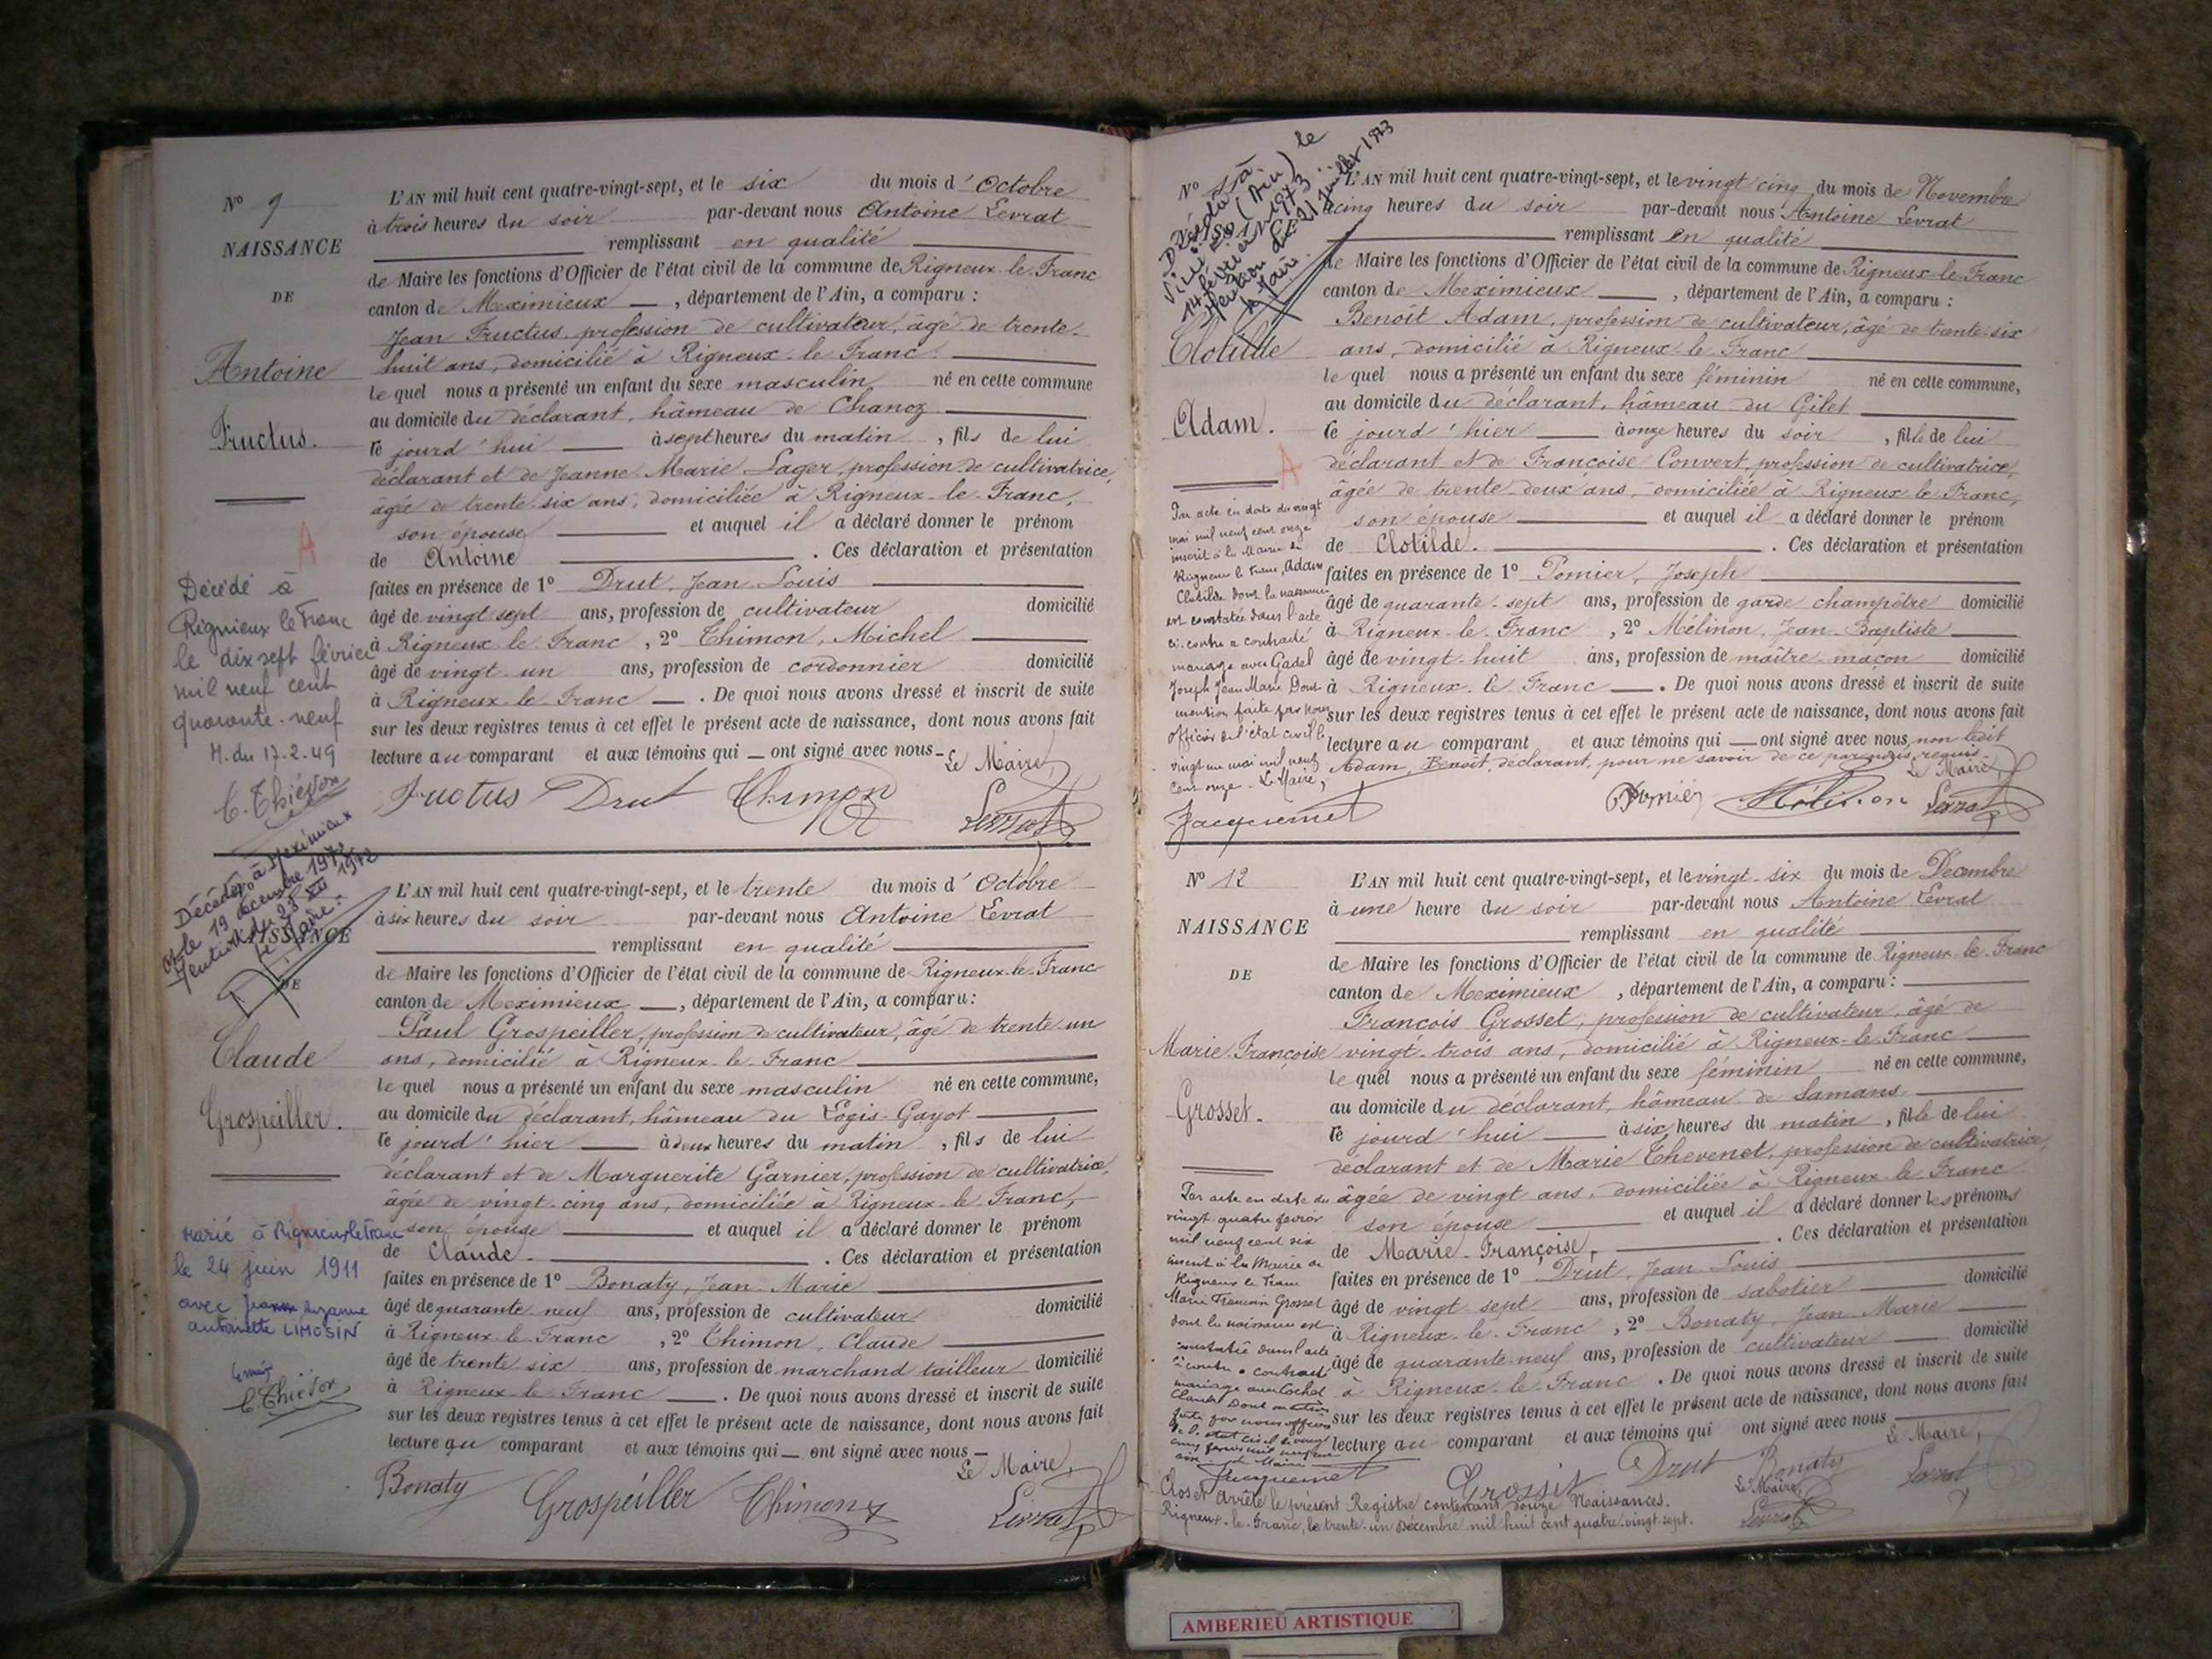 Nº 9
NAISSANCE
DE
Antoine
Fructus.
A
Décédé à
Rignieux le Franc
le dix sept février
mil neuf cent
quarante-neuf
M. du 17-2-49
C. Thiévon
L'AN mil huit cent quatre-vingt-sept, et le six du mois d'Octobre
à trois heures du soir par-devant nous Antoine Levrat
remplissant en qualité
de Maire les fonctions d'Officier de l'état civil de la commune de Rigneux-le-Franc
canton de Meximieux, département de l'Ain, a comparu :
Jean Fructus, profession de cultivateur, âgé de trente-
huit ans, domicilié à Rigneux-le-Franc.
lequel nous a présenté un enfant du sexe masculin né en cette commune
au domicile du déclarant, hâmeau de Chanoz
ce jourd'hui à sept heures du matin, fils de lui
déclarant et de Jeanne-Marie Lager, profession de cultivatrice,
âgée de trente-six ans, domiciliée à Rigneux-le-Franc,
son épouse et auquel il a déclaré donner le prénom
de Antoine. Ces déclaration et présentation
faites en présence de 1º Drut, Jean-Louis
âgé de vingt sept ans, profession de cultivateur domicilié
à Rigneux-le-Franc, 2º Thimon, Michel
âgé de vingt un ans, profession de cordonnier domicilié
à Rigneux-le-Franc. De quoi nous avons dressé et inscrit de suite
sur les deux registres tenus à cet effet le présent acte de naissance, dont nous avons fait
lecture au comparant et aux témoins qui ont signé avec nous - Le Maire,
Fructus Drut Thimon Levrat
Décédé à Meximieux
le 19 décembre 197
Mention du 28 XII 1972
Le Maire :
NAISSANCE
DE
Claude
Grospeiller.
Marié à Rigneux le Franc
le 24 juin 1911
avec Jeanne Suzanne
antoinette LIMOSIN
C. Thiévon
L'AN mil huit cent quatre-vingt-sept, et le trente du mois d'Octobre
à six heures du soir par-devant nous Antoine Levrat
remplissant en qualité
de Maire les fonctions d'Officier de l'état civil de la commune de Rigneux-le-Franc
canton de Meximieux, département de l'Ain, a comparu :
Paul Grospeiller, profession de cultivateur, âgé de trente-un
ans, domicilié à Rigneux-le-Franc
lequel nous a présenté un enfant du sexe masculin né en cette commune,
au domicile du déclarant, hâmeau du Logis-Gayot
ce jourd'hier à deux heures du matin, fils de lui
déclarant et de Marguerite Garnier, profession de cultivatrice,
âgée de vingt-cinq ans, domiciliée à Rigneux-le-Franc,
son épouse et auquel il a déclaré donner le prénom
de Claude. Ces déclaration et présentation
faites en présence de 1º Bonaty, Jean-Marie
âgé de quarante-neuf ans, profession de cultivateur domicilié
à Rigneux-le-Franc, 2º Thimon, Claude
âgé de trente six ans, profession de marchand tailleur domicilié
à Rigneux-le-Franc. De quoi nous avons dressé et inscrit de suite
sur les deux registres tenus à cet effet le présent acte de naissance, dont nous avons fait
lecture au comparant et aux témoins qui ont signé avec nous - Le Maire,
Bonaty Grospeiller Thimon Levrat
Nº 11
Décédée à
(Ain) le
14 février 1973
Mention du 21 juillet 1973
le Maire.
NAISSANCE
Clotilde
Adam.
A
Par acte en date du vingt
mai mil neuf cent onze
inscrit à la Mairie de
Rigneux le Franc, Adam
Clotilde dont la naissance
est constatée dans l'acte
ci-contre a contracté
mariage avec Gadel
Joseph Jean Marie Dont
mention faite par nous
officier de l'état civil le
vingt un mai mil neuf
cent onze - Le Maire,
Jacquemet
L'AN mil huit cent quatre-vingt-sept, et le vingt cinq du mois de Novembre
à cinq heures du soir par-devant nous Antoine Levrat
remplissant en qualité
de Maire les fonctions d'Officier de l'état civil de la commune de Rigneux-le-Franc
canton de Meximieux, département de l'Ain, a comparu :
Benoît Adam, profession de cultivateur, âgé de trente-six
ans, domicilié à Rigneux-le-Franc
lequel nous a présenté un enfant du sexe féminin né en cette commune,
au domicile du déclarant, hâmeau du Gilet
ce jourd'hier à onze heures du soir, fille de lui
déclarant et de Françoise Convert, profession de cultivatrice,
âgée de trente-deux ans, domiciliée à Rigneux-le-Franc,
son épouse et auquel il a déclaré donner le prénom
de Clotilde. Ces déclaration et présentation
faites en présence de 1º Pomier, Joseph
âgé de quarante-sept ans, profession de garde champêtre domicilié
à Rigneux-le-Franc, 2º Mélinon, Jean-Baptiste
âgé de vingt-huit ans, profession de maître-maçon domicilié
à Rigneux-le-Franc. De quoi nous avons dressé et inscrit de suite
sur les deux registres tenus à cet effet le présent acte de naissance, dont nous avons fait
lecture au comparant et aux témoins qui ont signé avec nous, non ledit
Adam, Benoît, déclarant, pour ne savoir de ce par nous requis.
Le Maire,
Pomier Mélinon Levrat
Nº 12
NAISSANCE
DE
Marie-Françoise
Grosset.
Par acte en date du
vingt quatre février
mil neuf cent six
inscrit à la Mairie de
Rigneux le Franc
dont la naissance est
constatée dans l'acte
ci-contre a contracté
mariage avec Cochet
Claude Dont mention
faite par nous officier
de l'état civil le vingt
Jacquemet
L'AN mil huit cent quatre-vingt-sept, et le vingt-six du mois de Décembre
à une heure du soir par-devant nous Antoine Levrat
remplissant en qualité
de Maire les fonctions d'Officier de l'état civil de la commune de Rigneux-le-Franc
canton de Meximieux, département de l'Ain, a comparu :
François Grosset, profession de cultivateur, âgé de
vingt-trois ans, domicilié à Rigneux-le-Franc
lequel nous a présenté un enfant du sexe féminin né en cette commune,
au domicile du déclarant, hâmeau de Samans
ce jourd'hui à six heures du matin, fille de lui
déclarant et de Marie Thevenet, profession de cultivatrice,
âgée de vingt ans, domiciliée à Rigneux-le-Franc
son épouse et auquel il a déclaré donner les prénoms
de Marie-Françoise, Ces déclaration et présentation
faites en présence de 1º Drut, Jean-Louis
âgé de vingt-sept ans, profession de sabotier domicilié
à Rigneux-le-Franc, 2º Bonaty, Jean-Marie
âgé de quarante-neuf ans, profession de cultivateur domicilié
à Rigneux-le-Franc. De quoi nous avons dressé et inscrit de suite
sur les deux registres tenus à cet effet le présent acte de naissance, dont nous avons fait
lecture au comparant et aux témoins qui ont signé avec nous
Le Maire,
Grosset Drut Bonaty Levrat
Clos et Arrêté le présent Registre contenant douze Naissances.
Rigneux-le-Franc, le trente-un Décembre mil huit cent quatre-vingt-sept.
Le Maire,
Levrat
AMBERIEU ARTISTIQUE